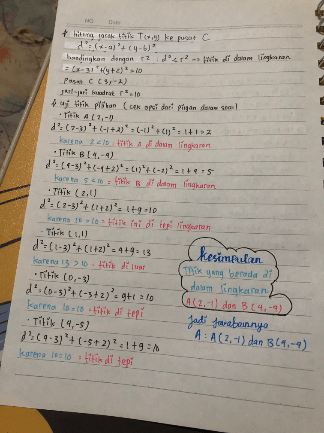 NO. Date
* hitung jarak titik T(x,y) ke pusat C
d²=(x-a)²+(y-b)²
bandingkan dengan r² : d²<r² → titik di dalam lingkaran
= (x-3)²+(y+2)²=10
Pusat C (3,-2)
jari-jari kuadrat r²=10
* uji titik pilihan (cek opsi dari pilgan dalam soal)
· Titik A (2,-1)
d²=(2-3)²+(-1+2)²=(-1)²+(1)²=1+1=2
karena 2<10 = titik A di dalam lingkaran
· Titik B (4,-4)
d²=(4-3)²+(-4+2)²=(1)²+(-2)²=1+4=5
karena 5<10 = titik B di dalam lingkaran
· Titik (2,1)
d²=(2-3)²+(1+2)²=1+9=10
karena 10=10 = titik ini di tepi lingkaran
· Titik (1,1)
d²=(1-3)²+(1+2)²=4+9=13
karena 13>10 = titik di luar
· Titik (0,-3)
d²=(0-3)²+(-3+2)²=9+1=10
karena 10=10 = titik di tepi
· Titik (4,-5)
d²=(4-3)²+(-5+2)²=1+9=10
karena 10=10 = titik di tepi
kesimpulan
Titik yang berada di
dalam lingkaran
A(2,-1) dan B(4,-4)
Jadi jawabannya
A : A(2,-1) dan B(4,-4)